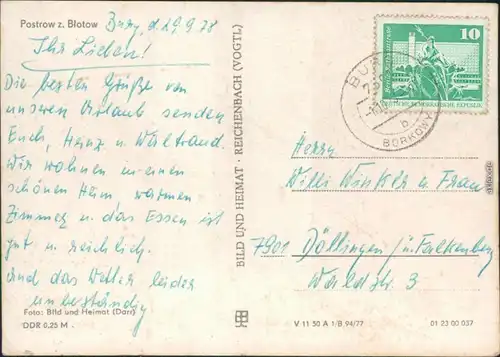 Postrow z. Błotow
Burg, d. 29.9.78
Ihr Lieben!
Die besten Grüße von
unseren Urlaub senden
Euch, Heinz u. Waltraud.
Wir wohnen in einen
schönen Heim warmen
Zimmer u. das Essen ist
gut u. reichlich.
und das Wetter leider
unbeständig
Foto: Bild und Heimat (Darr)
DDR 0,25 M
BILD UND HEIMAT · REICHENBACH (VOGTL)
V 11 50 A 1/B 94/77
01 23 00 037
10
DEUTSCHE DEMOKRATISCHE REPUBLIK
BU
b
BORKOWY
Herrn
Willi Winkler u. Frau
7901 Döllingen ü. Falkenberg
Waldstr. 3